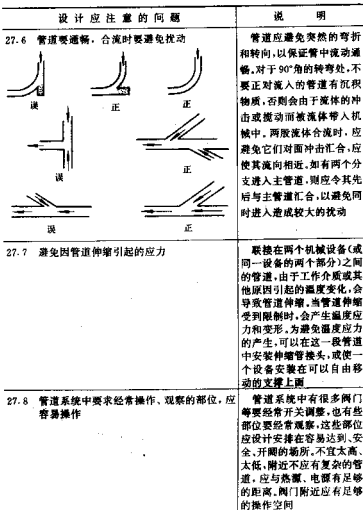 设计应注意的问题
说 明
27.6 管道要通畅，合流时要避免扰动
误
正
正
误
正
误
正
管道应避免突然的弯折
和转向，以保证管中流动通
畅。对于90°角的转弯处，不
要正对流入的管道有沉积
物质，否则会由于流体的冲
击或搅动而被流体带入机
械中。两股流体合流时，应
避免它们对面冲击汇合，应
使其流向相近。如有两个分
支进入主管道，则应令其先
后与主管道汇合，以避免同
时进入造成较大的扰动
27.7 避免因管道伸缩引起的应力
联接在两个机械设备(或
同一设备的两个部分)之间
的管道，由于工作介质或其
他原因引起的温度变化，会
导致管道伸缩。当管道伸缩
受到限制时，会产生温度应
力和变形。为避免温度应力
的产生，可以在这一段管道
中安装伸缩管接头，或使一
个设备安装在可以自由移
动的支撑上面
27.8 管道系统中要求经常操作、观察的部位，应
容易操作
管道系统中有很多阀门
等要经常开关调整，也有些
部位要经常观察，这些部位
应设计安排在容易达到、安
全、开阔的场所。不宜太高、
太低，附近不应有复杂的管
道，应与热源、电源有足够
的距离。阀门附近应有足够
的操作空间